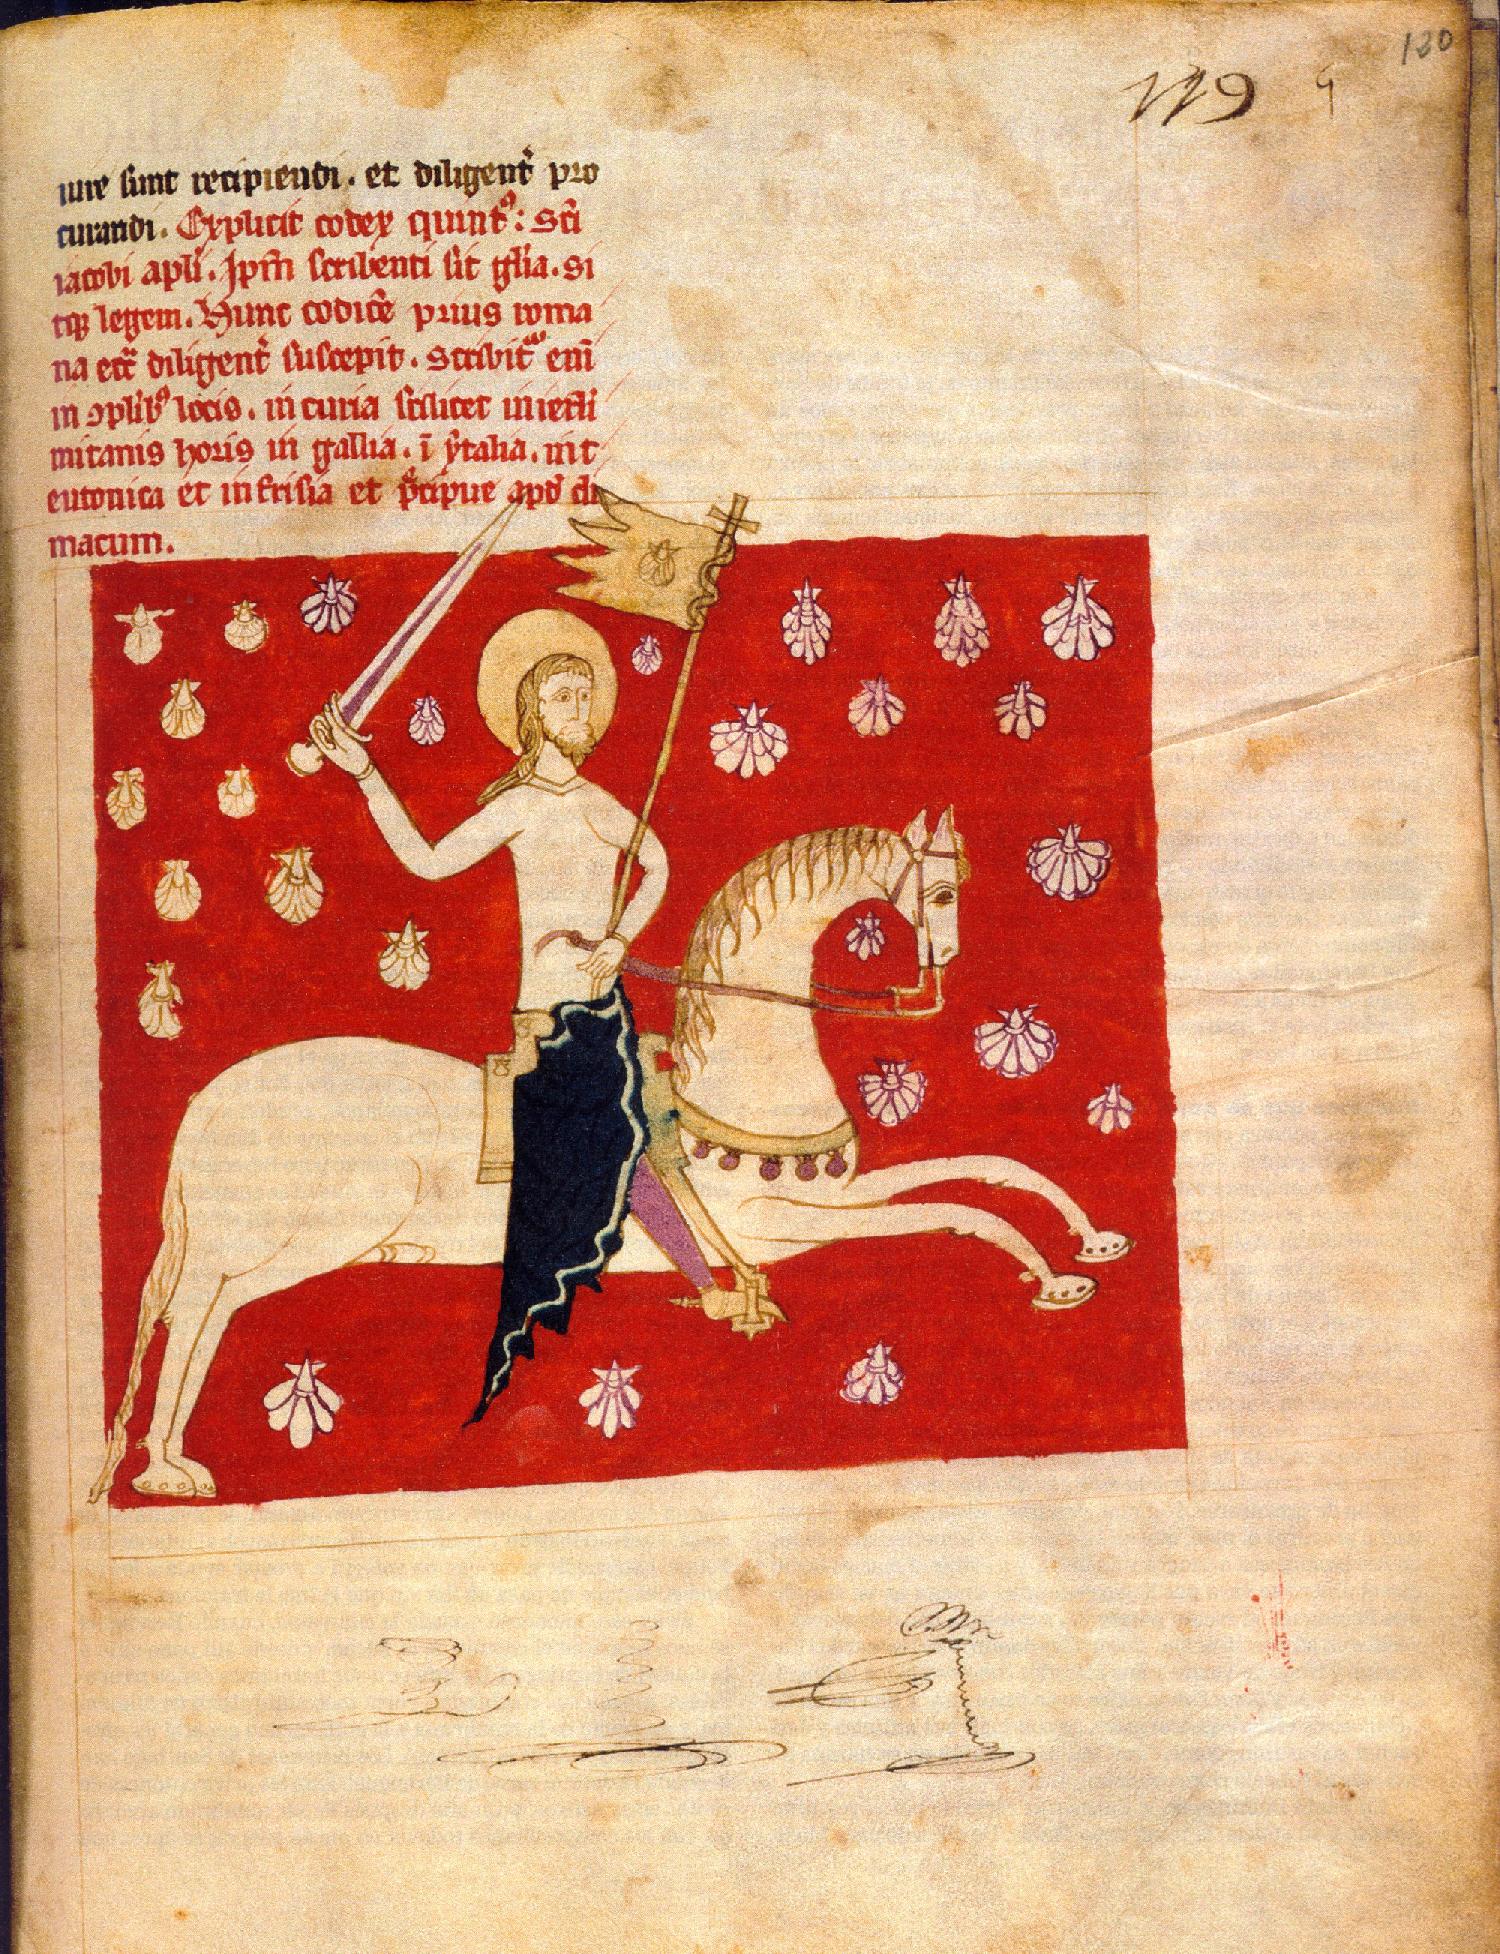 120
119
iure sunt recipiendi. et diligent̉ pro
curandi. Explicit codex quint⁹: Sc̄i
iacobi apl̄i. Ip̄m scribenti sit gl̄ia. si
tq; legenti. Hunc codicē prius roma
na ecc̄ diligent̉ suscepit. Scribit᷑ eni
in ꝯplib⁹ locis. in curia scilicet in iersl̄i
mitanis horis in gallia. ī ẏtalia. in t
eutonica et in frisia et p̄cipue apd̓ clu
niacum.